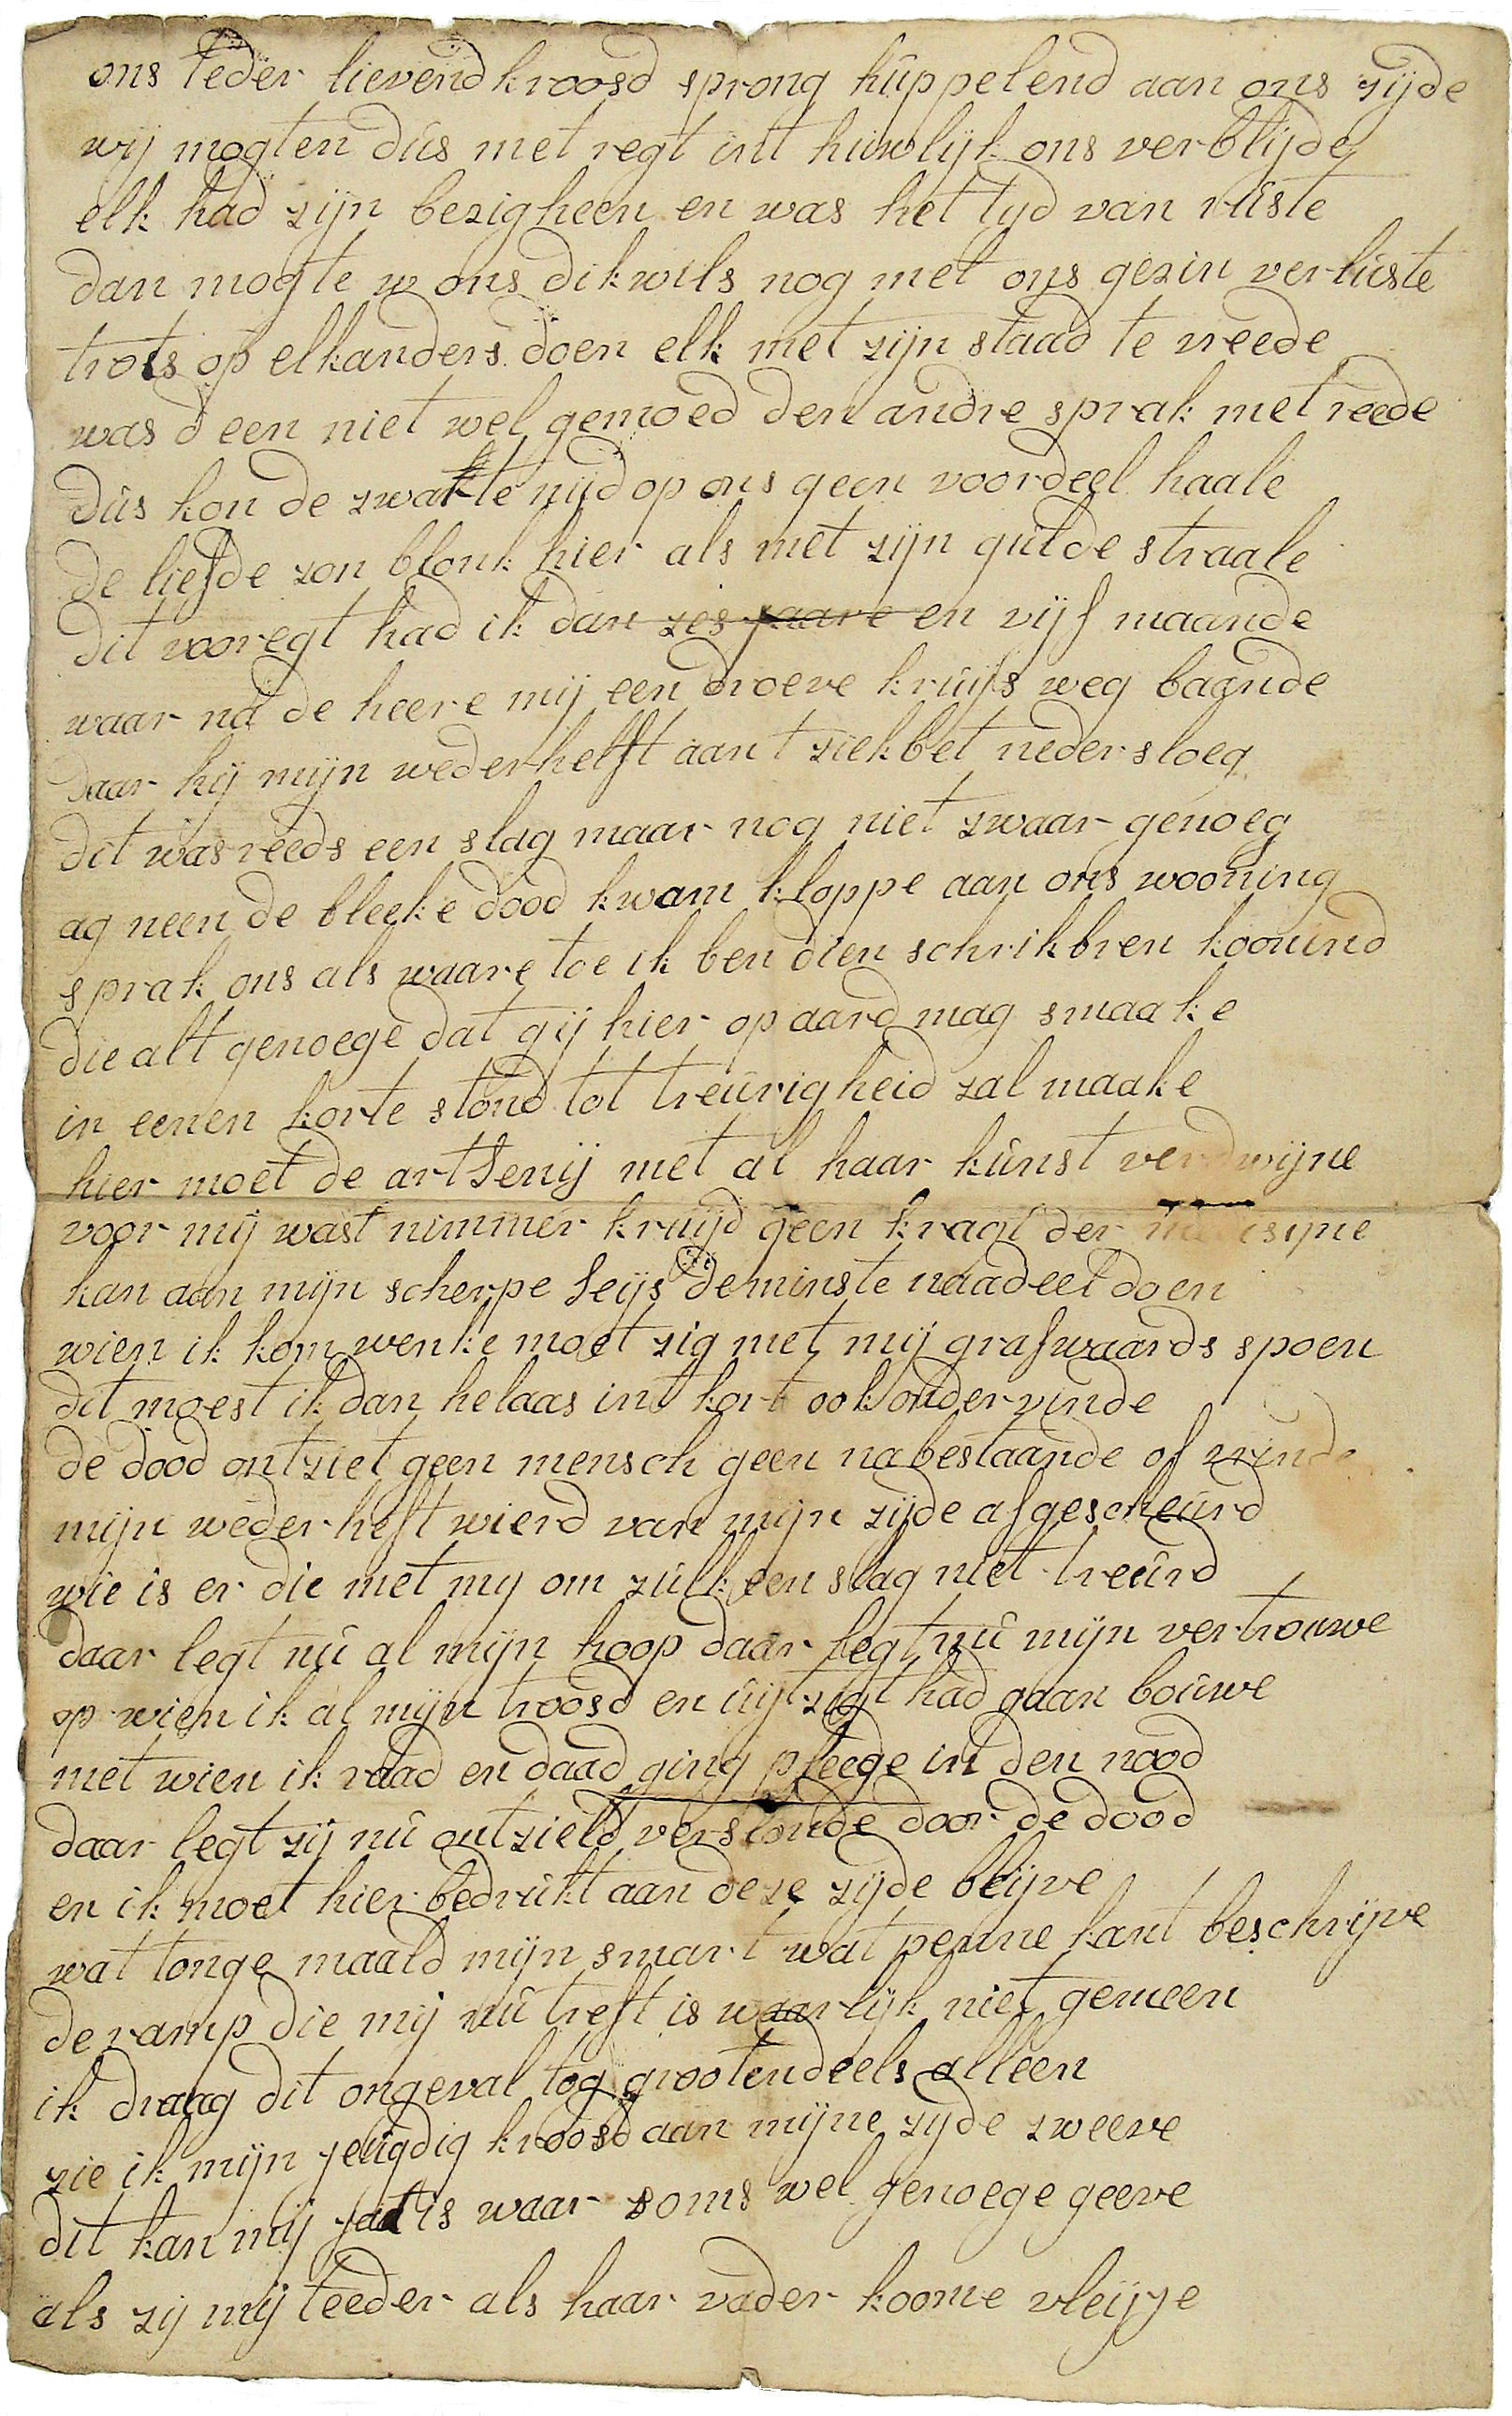 ons teder lievend kroosd sprong huppelend aan ons zijde
wij mogten dus met regt int huwlijk ons verblijde
elk had zijn bezigheen en was het tyd van ruste
dan mogte w ons dikwils nog met ons gezin verluste
trots op elkanders doen elk met zijn staad te vreede
was d een niet wel gemoed den andre sprak met reede
dus kon de zwarte nijd op ons geen voordeel haale
de liefde zon blonk hier als met zijn gulde straale
dit vooregt had ik dan zes jaare en vijf maande
waar na de heere mij een droeve kruijs weg baande
daar hij mijn wederhelft aan t ziekbet nedersloeg
dit was reeds een slag maar nog niet zwaar genoeg
ag neen de bleeke dood kwam kloppe aan ons wooning
sprak ons als waare toe ik ben dien schrikbren koonind
die alt genoege dat gij hier op aard mag smaake
in eenen korte stond tot treurigheid zal maake
hier moet de artsenij met al haar kunst verdwijne
voor mij wast nimmer kruijd geen kragt der medisyne
kan aan mijn scherpe seijs de minste naadeel doen
wien ik kom wenke moet zig met mij grafwaards spoen
dit moest ik dan helaas int kort ook ondervinde
de dood ontziet geen mensch geen nabestaande of vrinde
mijn wederheft wierd van mijn zijde afgescheurd
wie is er die met my om zulk een slag niet treurd
daar legt nu al mijn hoop daar legt nu mijn vertrouwe
op wien ik al mijn troosd en uijtzigt had gaan bouwe
met wien ik raad en daad ging pleege in den nood
daar legt zij nu ontzield verslonde door de dood
en ik moet hier bedrukt aan deze zijde blijve
wat tonge maald mijn smart wat penne kant beschrijve
de ramp die mij nu treft is waarlijk niet gemeen
ik draag dit ongeval tog grootendeels alleen
zie ik mijn jeugdig kroosd aan mijne zyde zweeve
dit kan mij jaat is waar soms wel genoege geeve
als zij mij teeder als haar vader koome vleije